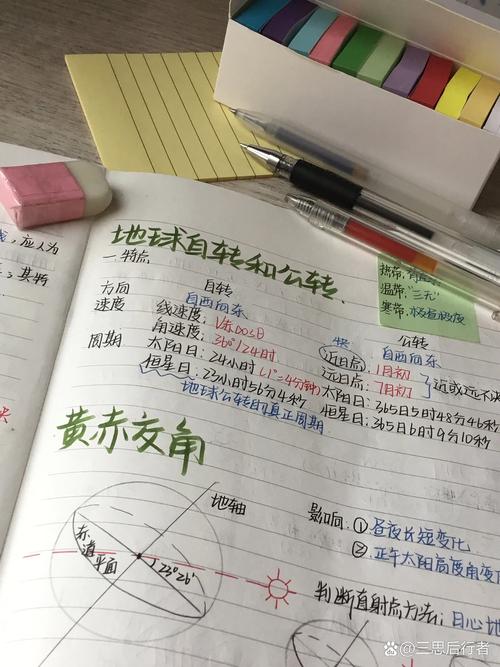 应人为
地球自转和公转
一.特点
热带:有
温带:"三无"
寒带:极昼极夜
自转 公转
方向 自西向东 自西向东
速度 线速度:
角速度:360°/24时
近日点:1月初
远日点:7月初
周期 太阳日:24小时(1°=4分钟) 太阳日:365日5时48分46秒
恒星日:23小时56分4秒 恒星日:365日6时9分10秒
地球公转的真正周期
黄赤交角
地轴
赤道平面
23°26′
影响:①昼夜长短变化
②正午太阳高度角变
判断直射点方法:日心地
百家号/三思后行者